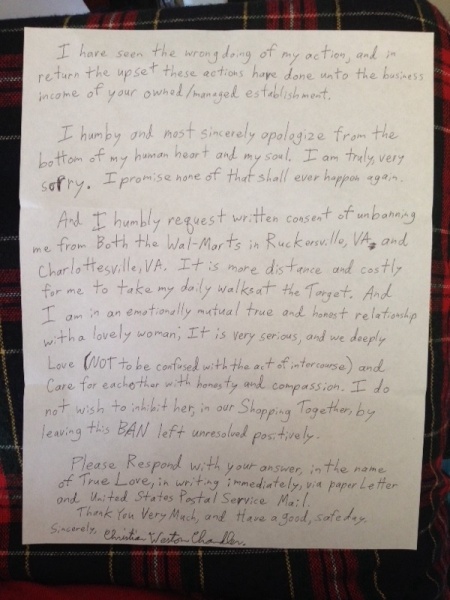 I have seen the wrong doing of my action, and in
return the upset these actions have done unto the business
income of your owned/managed establishment.
I humby and most sincerely apologize from the
bottom of my human heart and my soul. I am truly, very
sorry. I promise none of that shall ever happen again.
And I humbly request written consent of unbanning
me from Both the Wal-Marts in Ruckersville, VA, and
Charlottesville, VA. It is more distance and costly
for me to take my daily walks at the Target. And
I am in an emotionally mutual true and honest relationship
with a lovely woman; It is very serious, and we deeply
Love (NOT to be confused with the act of intercourse) and
Care for each other with honesty and compassion. I do
not wish to inhibit her, in our Shopping Together, by
leaving this BAN left unresolved positively.
Please Respond with your answer, in the name
of True Love, in writing immediately, via paper Letter
and United States Postal Service Mail.
Thank You Very Much, and Have a good, safe day.
Sincerely, Christian Weston Chandler.